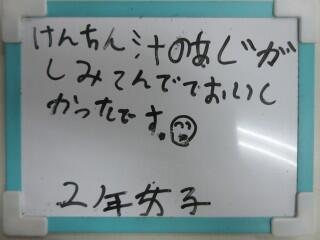 けんちん汁のあじが
しみてんでておいし
かったです。
2年女子